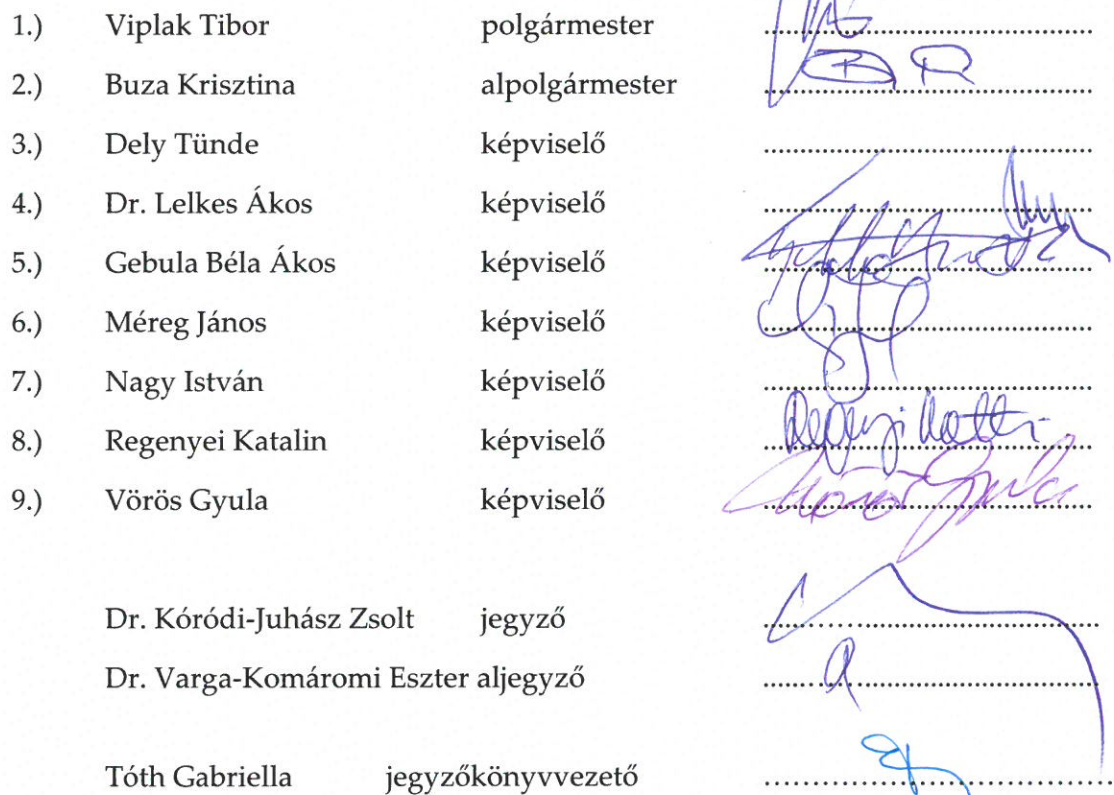 1.) Viplak Tibor polgármester
2.) Buza Krisztina alpolgármester
3.) Dely Tünde képviselő
4.) Dr. Lelkes Ákos képviselő
5.) Gebula Béla Ákos képviselő
6.) Méreg János képviselő
7.) Nagy István képviselő
8.) Regenyei Katalin képviselő
9.) Vörös Gyula képviselő Vörös Gyula
Dr. Kóródi-Juhász Zsolt jegyző
Dr. Varga-Komáromi Eszter aljegyző
Tóth Gabriella jegyzőkönyvvezető